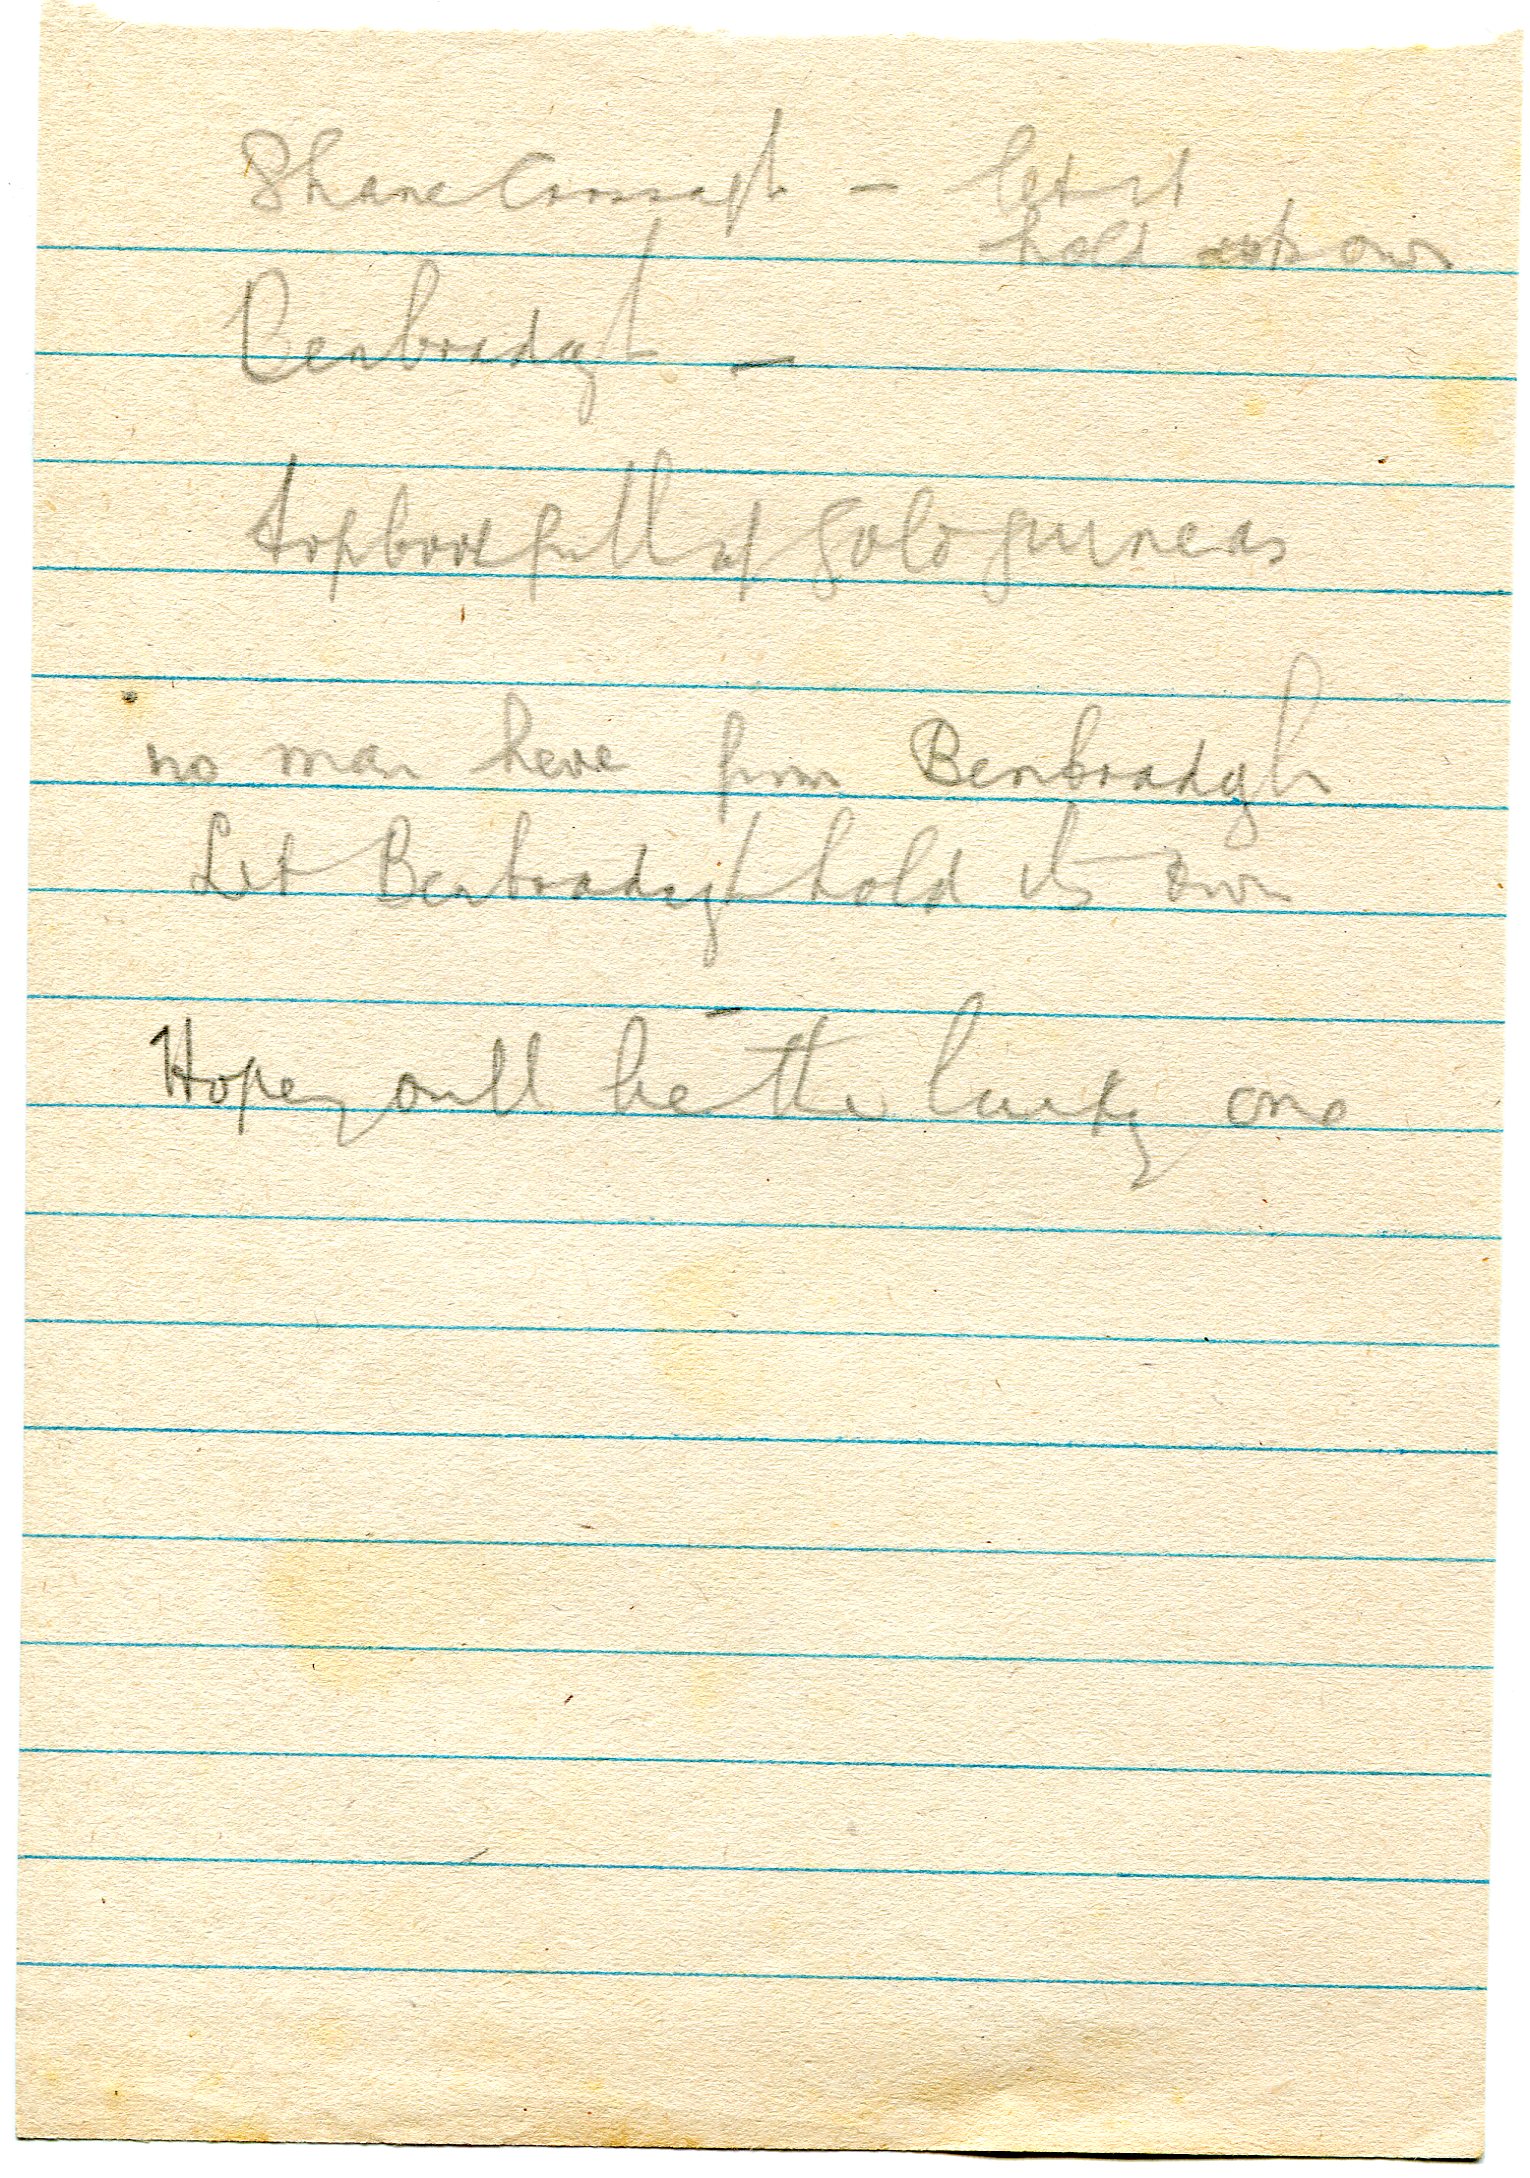 Shane Crossagh - let it
hold its own
Benbradagh -
topboot full of gold guineas
no man here from Benbradagh
Let Benbradagh hold its own
-
Hope you'll be the lucky one